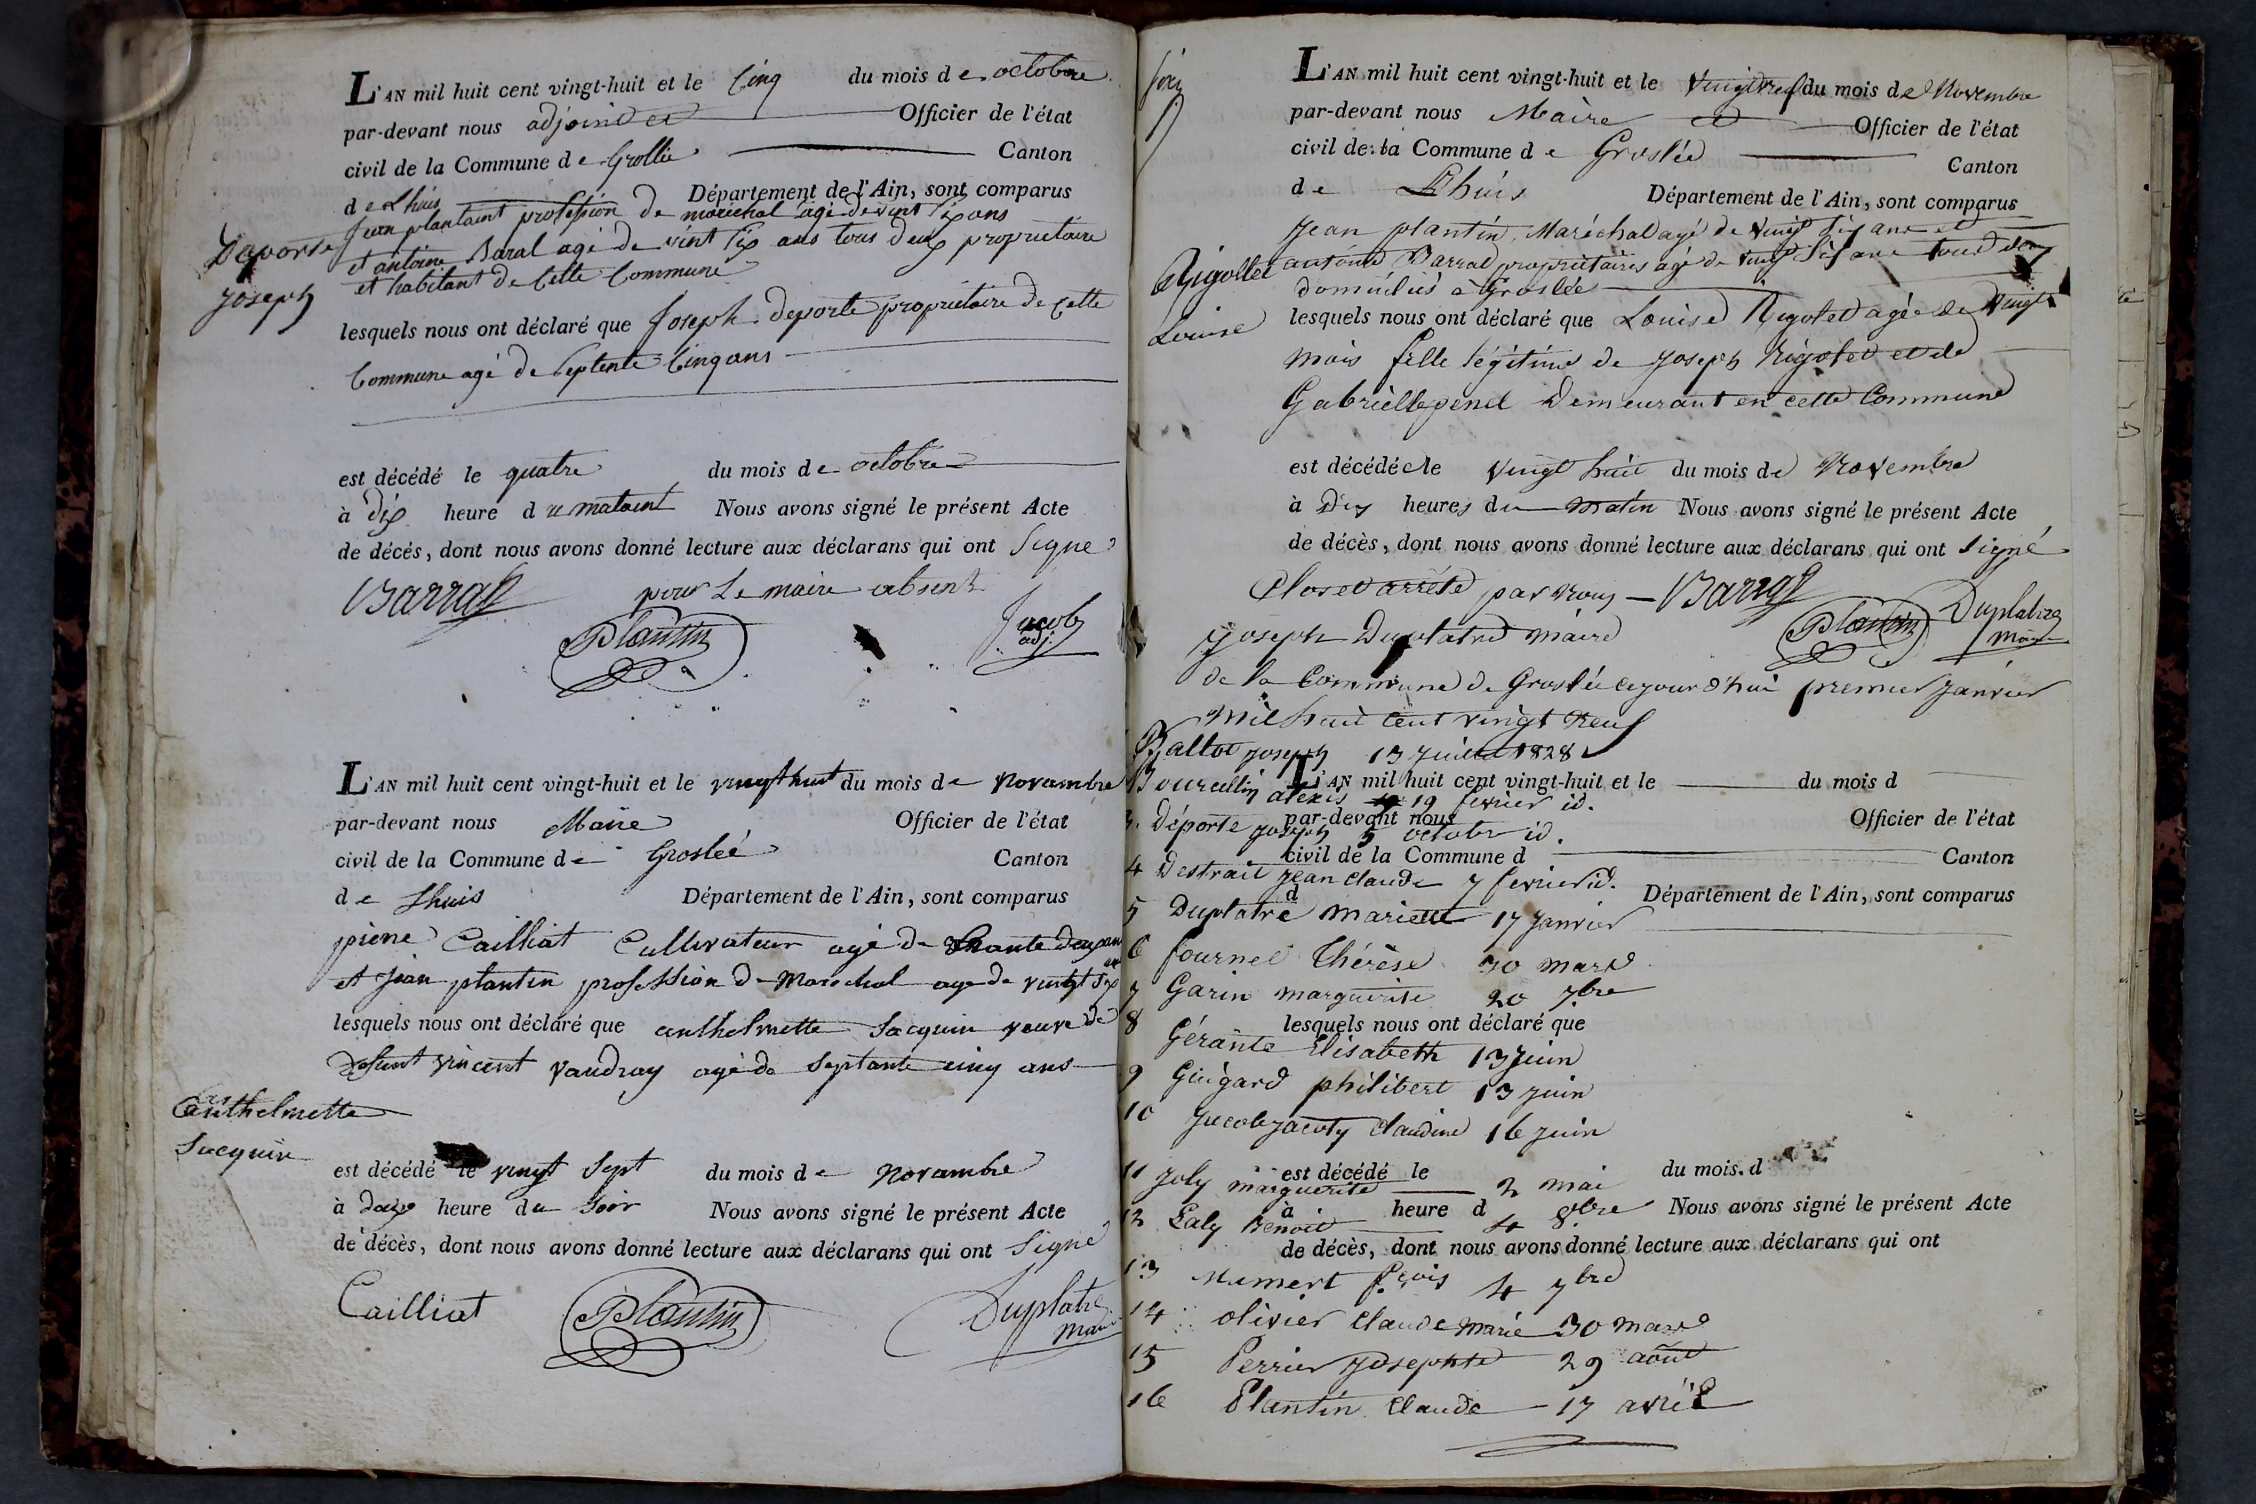 L'AN mil huit cent vingt-huit et le Cinq du mois de octobre
par-devant nous adjoind et Officier de l'état
civil de la Commune de Grollée Canton
de Lhuis Département de l'Ain, sont comparus
Jean plantaint profession de marechal agé de vint six ans
et antoine Baral agé de vint six ans tous deux proprietaire
et habitant de Cette Commune
Deporte
Joseph
lesquels nous ont déclaré que Joseph deporte propriétaire de Cette
Commune agé de Septente Cinq ans
est décédé le quatre du mois de octobre
à dix heure du mataint Nous avons signé le présent Acte
de décés, dont nous avons donné lecture aux déclarans qui ont Signé
pour Le maire absent
Barral Plantin Jacob
adj.
L'AN mil huit cent vingt-huit et le vingt huit du mois de Novambre
par-devant nous Maire Officier de l'état
civil de la Commune de Groslée Canton
de Lhuis Département de l'Ain, sont comparus
pierre Cailliat Cultivateur agé de deux ans
et Jean plantin profession de Marechal age de vingt six ans
lesquels nous ont déclaré que anthelmette Jacquin veuve de
defunt vincent vaudray agé de septante cinq ans
anthelmette
Jacquin
est décédé le vingt Sept du mois de Novambre
à heure du Soir Nous avons signé le présent Acte
de décès, dont nous avons donné lecture aux déclarans qui ont Signé
Cailliat Plantin Duplatre
Maire
L'AN mil huit cent vingt-huit et le vingt neuf du mois de Novembre
par-devant nous Maire Officier de l'état
civil de la Commune de Groslée Canton
de Lhuis Département de l'Ain, sont comparus
Jean plantin, Maréchal agé de vingt six ans et
antoine Barral propriétaires agé de vingt six ans tous deux
domiciliés a Groslée
Rigollet
Louise
lesquels nous ont déclaré que Louise Rigolet agée de vingt
mois fille légitime de Joseph Rigolet et de
Gabrielle penel Demeurant en cette Commune
est décédée le vingt huit du mois de Novembre
à Dix heures du matin Nous avons signé le présent Acte
de décès, dont nous avons donné lecture aux déclarans qui ont signé
Clos et arrêté par nous Barral
Plantin Duplatre
Maire
Joseph Duplatre maire
de la Commune de Groslée ce jour d'hui premier Janvier
mil huit cent vingt neuf
Ballot Joseph 13 Juillet 1828
L'AN mil huit cent vingt-huit et le du mois d
Bourcellin alexis 19 fevrier id.
par-devant nous Officier de l'état
3. Déporte Joseph 5 octobre id.
civil de la Commune d Canton
4 Destrait Jean Claude 7 fevrier id.
d Département de l'Ain, sont comparus
5 Duplatre Mariette 17 Janvier
6 fournel Thérèse 30 mars
7 Garin marguerite 20 7bre
lesquels nous ont déclaré que
8 Gérante Elisabeth 13 Juin
9 Guigard philibert 13 juin
10 Jucobjacoty Claudine 16 juin
est décédé le du mois d
11 Joly marguerite 2 mai
à heure d Nous avons signé le présent Acte
12 Laly Benoit 4 8bre
de décès, dont nous avons donné lecture aux déclarans qui ont
13 Mumert fçois 4 7bre
14 olivier Claude marie 30 mars
15 Perrier Josephte 29 août
16 Plantin Claude 17 avril